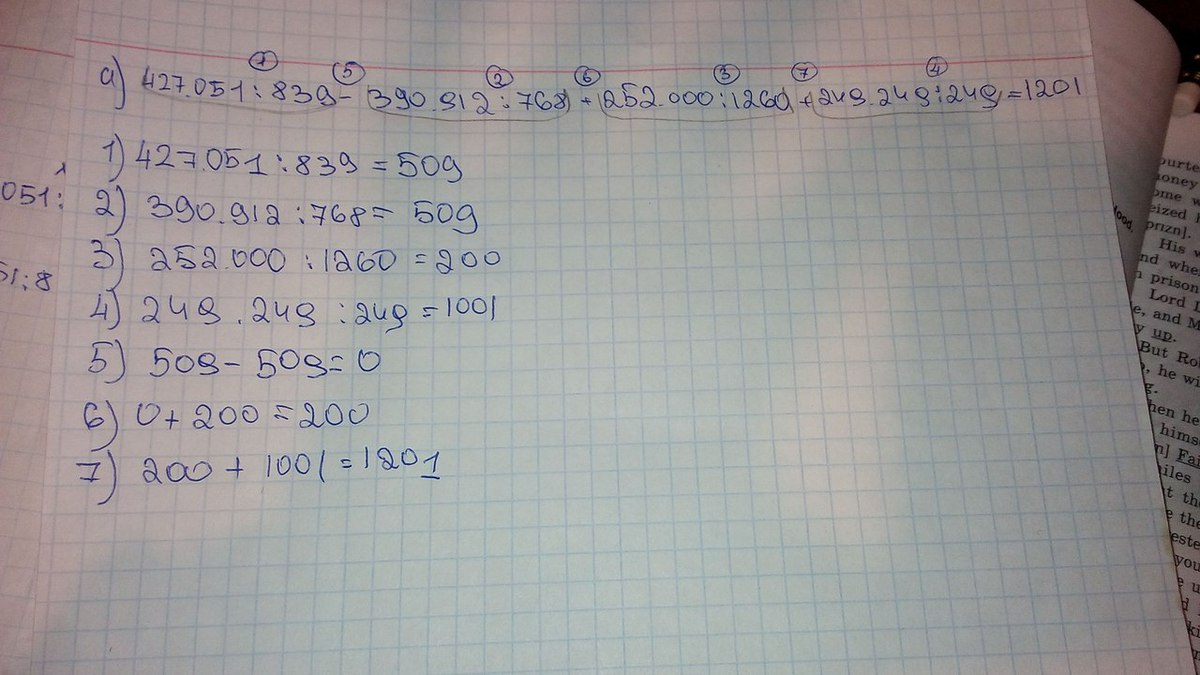 а) 427.051 : 839 - 390.912 : 768 + 252.000 : 1260 + 249.249 : 249 = 1201
1 5 2 6 3 7 4
1) 427.051 : 839 = 509
2) 390.912 : 768 = 509
3) 252.000 : 1260 = 200
4) 249.249 : 249 = 1001
5) 509 - 509 = 0
6) 0 + 200 = 200
7) 200 + 1001 = 1201
051 :
51 : 8
food.
His w
prison
Lord L
e, and M
y up.
But Ro
e, he wi
himse